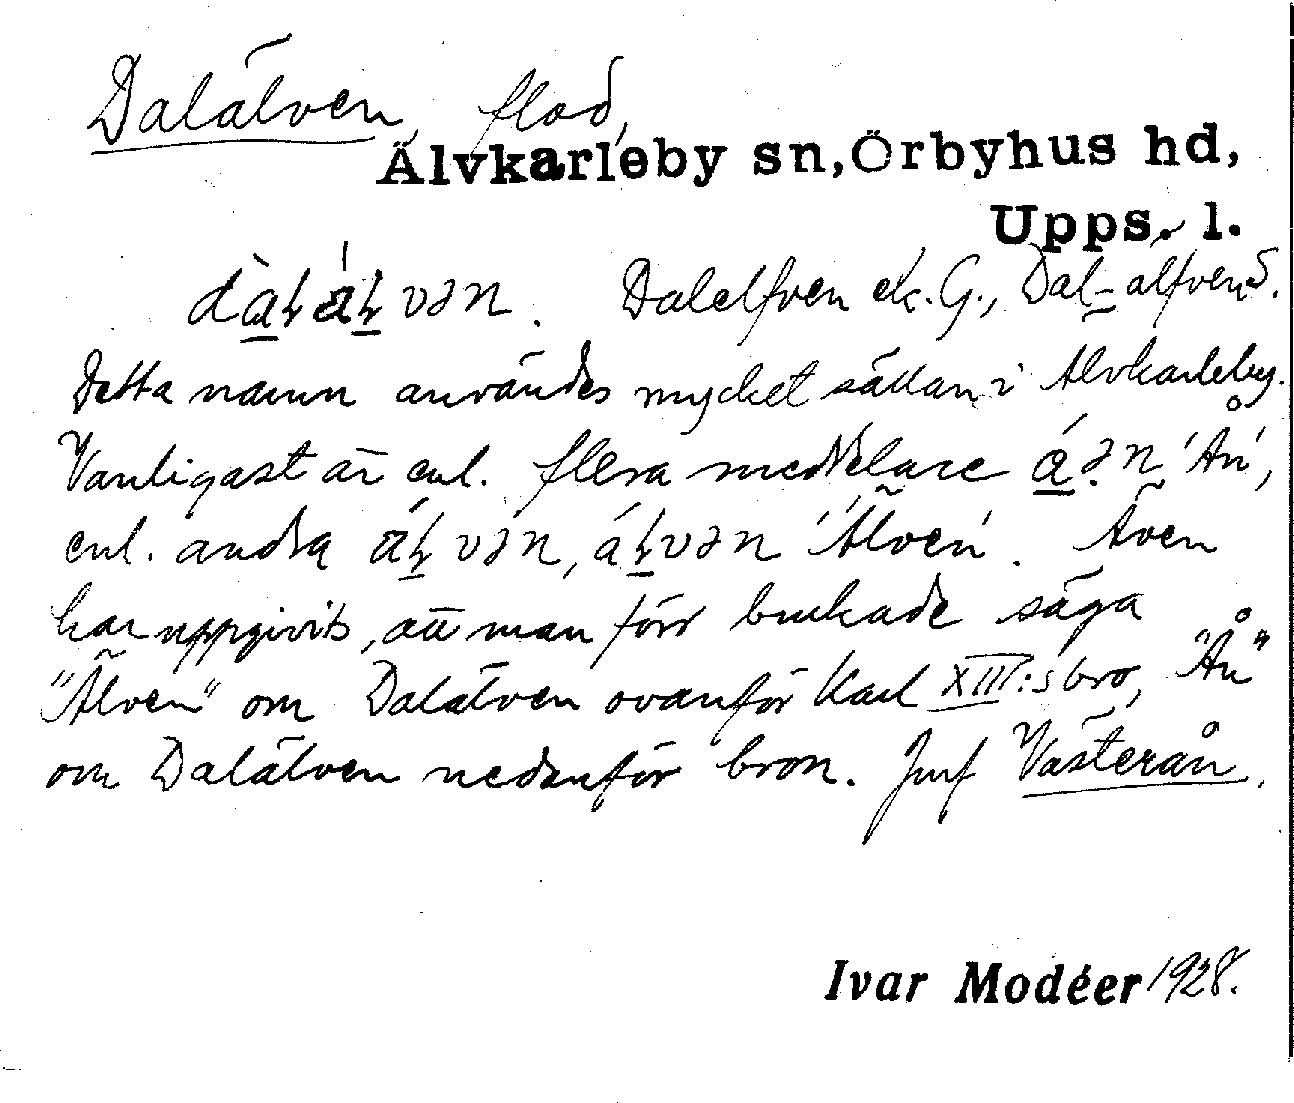 Dalälven, flod,
Älvkarleby sn, Örbyhus hd,
Upps. l.
Dalelfven ek. G., Dal-älfven
Detta namn användes mycket sällan i Älvkarleby.
Vanligast är enl. flera meddelare 'Ån',
enl. andra 'Älven'. Även
har uppgivits, att man förr brukade säga
"Älven" om Dalälven ovanför Karl XIII:s bro, "Ån"
om Dalälven nedanför bron. Jmf Västerån.
Ivar Modéer 1928.